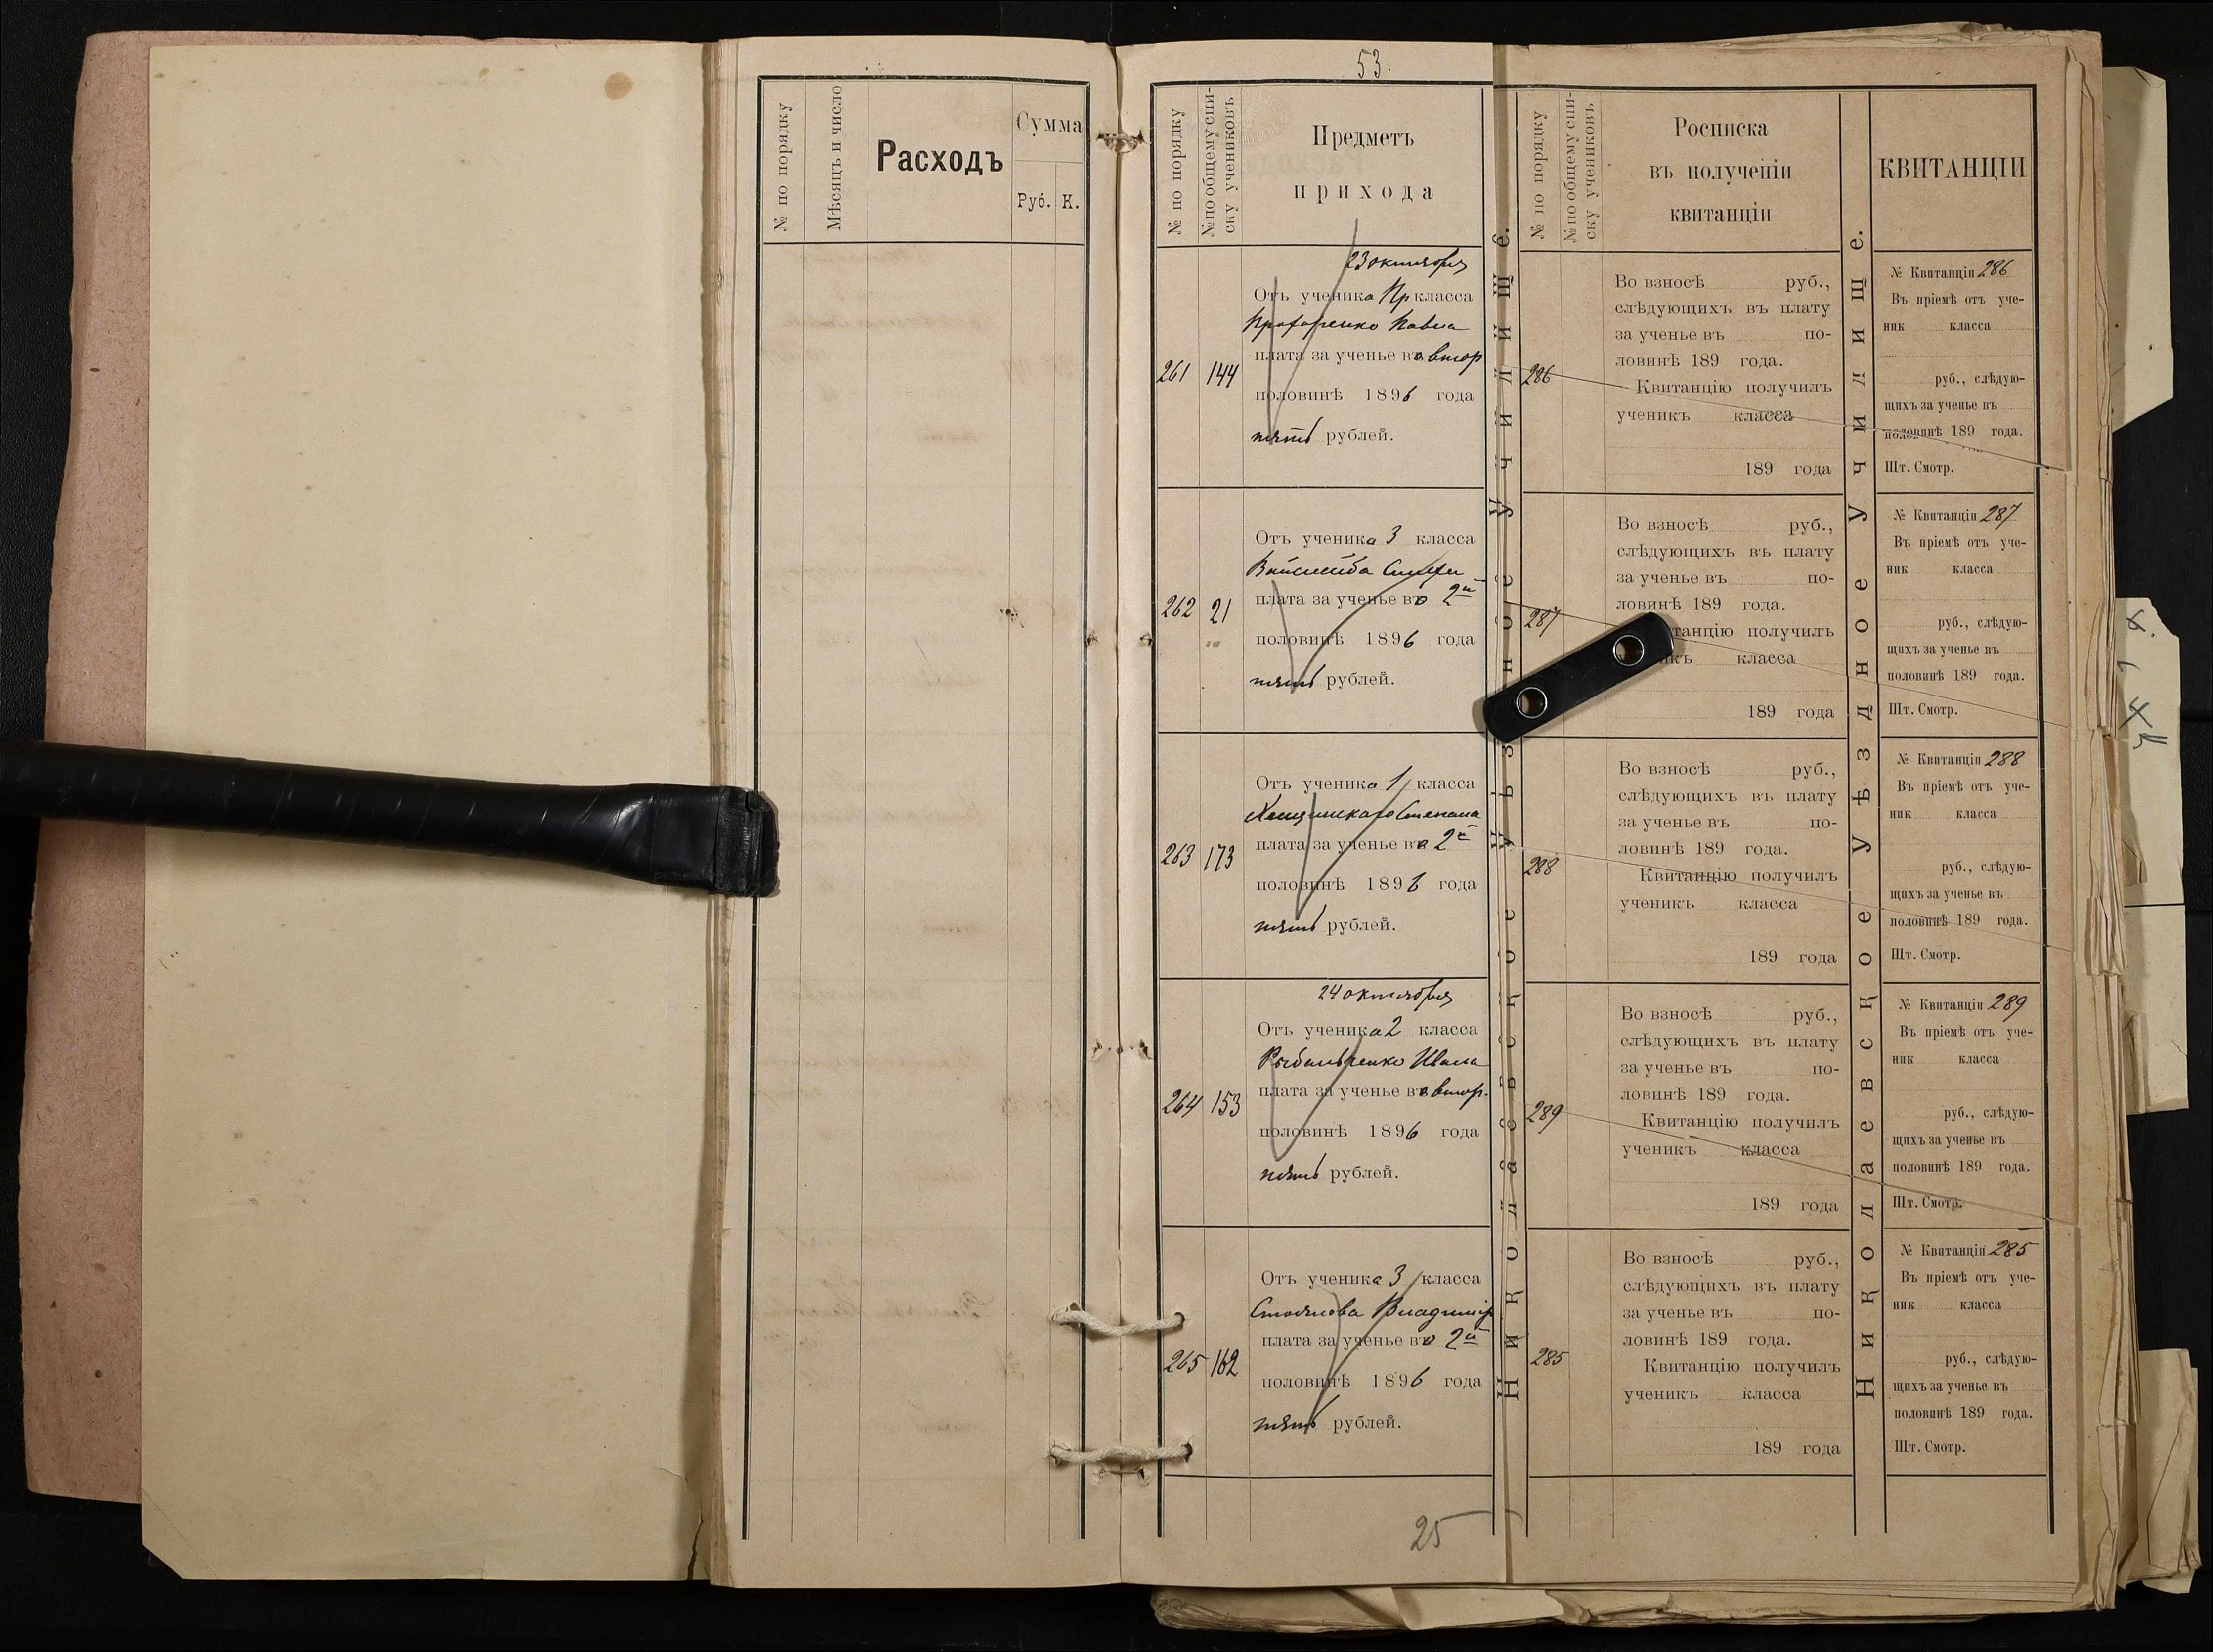 № по порядку
Мѣсяцъ и число
Расходъ
Сумма
Руб. К.
53.
№ по порядку
№ по общему спи-
ску учениковъ
Предметъ
прихода
23 октября
261 144
Отъ ученика Пр класса
Прохоренко Павла
плата за ученье во втор
половинѣ 1896 года
пять рублей.
262 21
Отъ ученика 3 класса
плата за ученье во 2й
половинѣ 1896 года
пять рублей.
263 173
Отъ ученика 1 класса
Степана
плата за ученье во 2й
половинѣ 1896 года
пять рублей.
24 октября
264 153
Отъ ученика 2 класса
Рыбальченко Ивана
плата за ученье во втор.
половинѣ 1896 года
пять рублей.
265 162
Отъ ученика 3 класса
Стоянова Владимір
плата за ученье во 2й
половинѣ 1896 года
пять рублей.
25
Николаевское Уѣздное Училище.
№ по порядку
№ по общему спи-
ску учениковъ
Росписка
въ полученіи
квитанціи
286
Во взносѣ руб.,
слѣдующихъ въ плату
за ученье въ по-
ловинѣ 189 года.
Квитанцію получилъ
ученикъ класса
189 года
287
Во взносѣ руб.,
слѣдующихъ въ плату
за ученье въ по-
ловинѣ 189 года.
танцію получилъ
икъ класса
189 года
288
Во взносѣ руб.,
слѣдующихъ въ плату
за ученье въ по-
ловинѣ 189 года.
Квитанцію получилъ
ученикъ класса
189 года
289
Во взносѣ руб.,
слѣдующихъ въ плату
за ученье въ по-
ловинѣ 189 года.
Квитанцію получилъ
ученикъ класса
189 года
285
Во взносѣ руб.,
слѣдующихъ въ плату
за ученье въ по-
ловинѣ 189 года.
Квитанцію получилъ
ученикъ класса
189 года
Николаевское Уѣздное Училище.
КВИТАНЦІИ
№ Квитанціи 286
Въ пріемѣ отъ уче-
ник класса
руб., слѣдую-
щихъ за ученье въ
половинѣ 189 года.
Шт. Смотр.
№ Квитанціи 287
Въ пріемѣ отъ уче-
ник класса
руб., слѣдую-
щихъ за ученье въ
половинѣ 189 года.
Шт. Смотр.
№ Квитанціи 288
Въ пріемѣ отъ уче-
ник класса
руб., слѣдую-
щихъ за ученье въ
половинѣ 189 года.
Шт. Смотр.
№ Квитанціи 289
Въ пріемѣ отъ уче-
ник класса
руб., слѣдую-
щихъ за ученье въ
половинѣ 189 года.
Шт. Смотр.
№ Квитанціи 285
Въ пріемѣ отъ уче-
ник класса
руб., слѣдую-
щихъ за ученье въ
половинѣ 189 года.
Шт. Смотр.